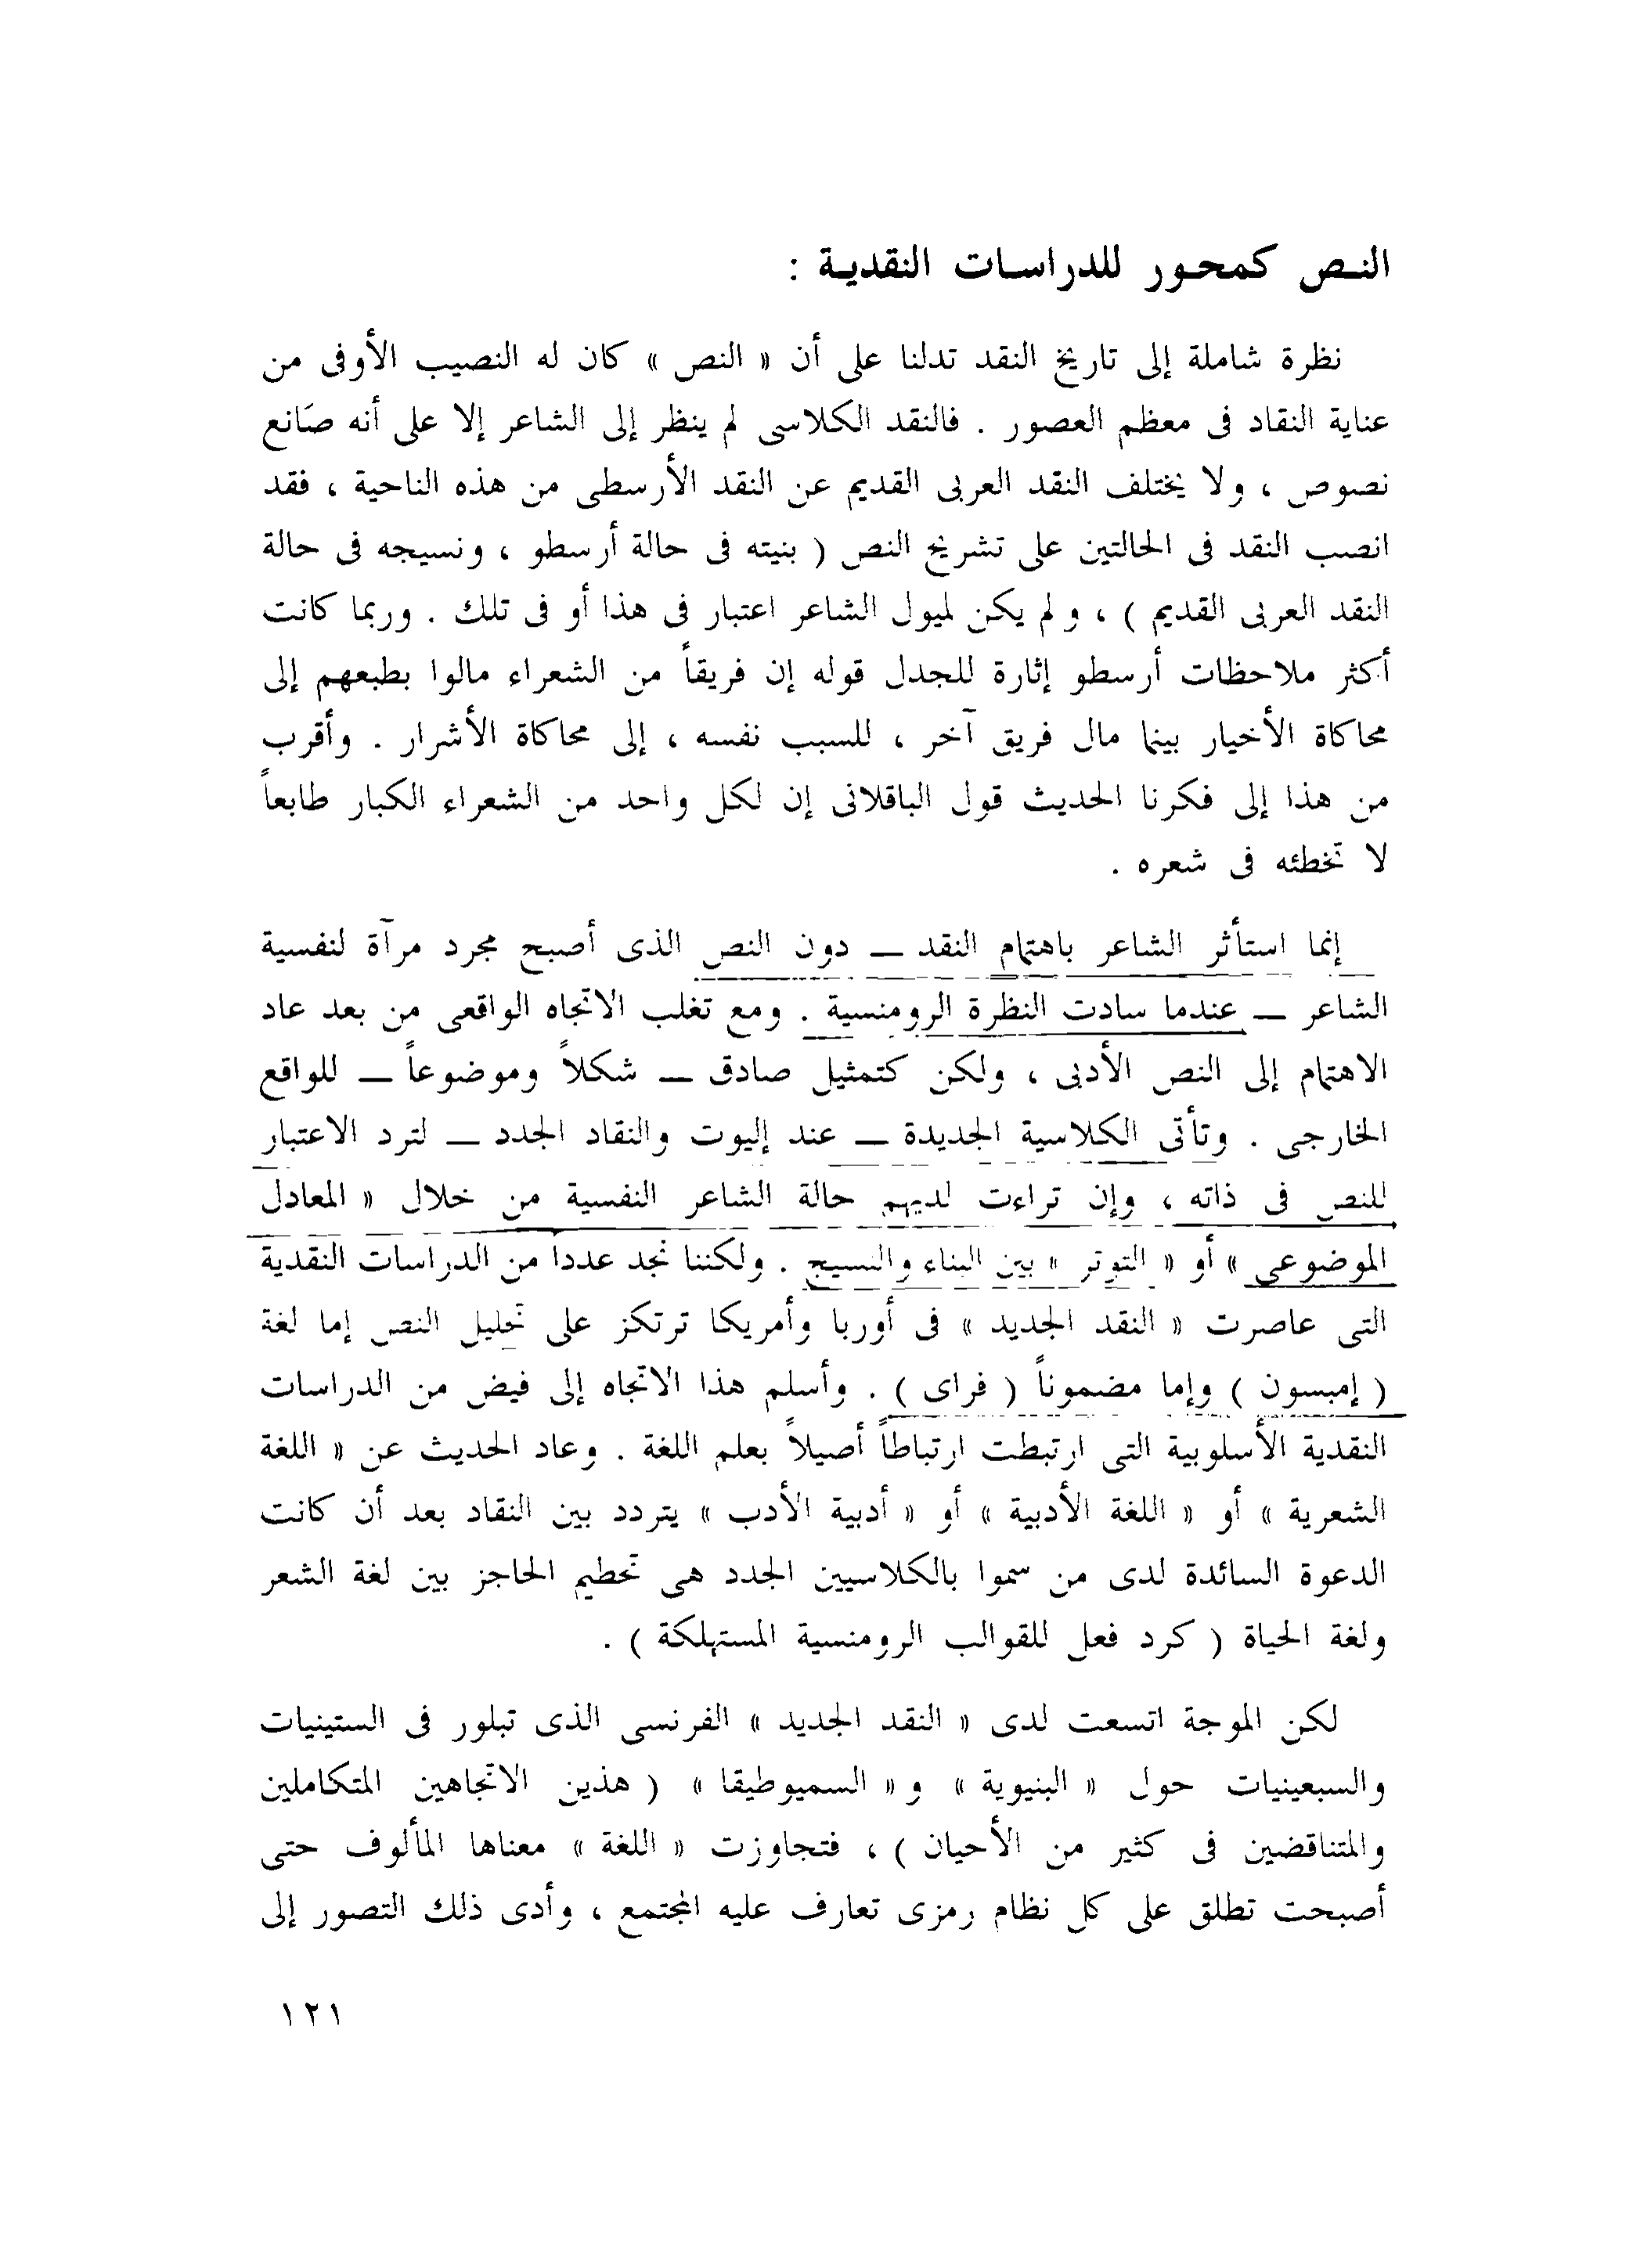 النص كمحور للدراسات النقدية :
نظرة شاملة إلى تاريخ النقد تدلنا على أن « النص » كان له النصيب الأوفى من
عناية النقاد فى معظم العصور . فالنقد الكلاسى لم ينظر إلى الشاعر إلا على أنه صَانع
نصوص ، ولا يختلف النقد العربى القديم عن النقد الأرسطى من هذه الناحية ، فقد
انصب النقد فى الحالتين على تشريح النص ( بنيته فى حالة أرسطو ، ونسيجه فى حالة
النقد العربى القديم ) ، و لم يكن لميول الشاعر اعتبار فى هذا أو فى تلك . وربما كانت
أكثر ملاحظات أرسطو إثارة للجدل قوله إن فريقاً من الشعراء مالوا بطبعهم إلى
محاكاة الأخيار بينما مال فريق آخر ، للسبب نفسه ، إلى محاكاة الأشرار . وأقرب
من هذا إلى فكرنا الحديث قول الباقلانى إن لكل واحد من الشعراء الكبار طابعاً
لا تخطئه فى شعره .
إنما استأثر الشاعر باهتمام النقد ــ دون النص الذى أصبح مجرد مرآة لنفسية
الشاعر ــ عندما سادت النظرة الرومنسية . ومع تغلب الاتجاه الواقعى من بعد عاد
الاهتمام إلى النص الأدبى ، ولكن كتمثيل صادق ــ شكلاً وموضوعاً ــ للواقع
الخارجى . وتأتى الكلاسية الجديدة ــ عند إليوت والنقاد الجدد ــ لترد الاعتبار
للنص فى ذاته ، وإن تراءت لديهم حالة الشاعر النفسية من خلال « المعادل
الموضوعى » أو « التوتر » بين البناء والنسيج . ولكننا نجد عدداً من الدراسات النقدية
التى عاصرت « النقد الجديد » فى أوربا وأمريكا ترتكز على تحليل النص إما لغة
( إمبسون ) وإما مضموناً ( فراى ) . وأسلم هذا الاتجاه إلى فيض من الدراسات
النقدية الأسلوبية التى ارتبطت ارتباطاً أصيلاً بعلم اللغة . وعاد الحديث عن « اللغة
الشعرية » أو « اللغة الأدبية » أو « أدبية الأدب » يتردد بين النقاد بعد أن كانت
الدعوة السائدة لدى من سموا بالكلاسيين الجدد هى تحطيم الحاجز بين لغة الشعر
ولغة الحياة ( كرد فعل للقوالب الرومنسية المستهلكة ) .
لكن الموجة اتسعت لدى « النقد الجديد » الفرنسى الذى تبلور فى الستينيات
والسبعينيات حول « البنيوية » و « السميوطيقا » ( هذين الاتجاهين المتكاملين
والمتناقضين فى كثير من الأحيان ) ، فتجاوزت « اللغة » معناها المألوف حتى
أصبحت تطلق على كل نظام رمزى تعارف عليه المجتمع ، وأدى ذلك التصور إلى
١٢١